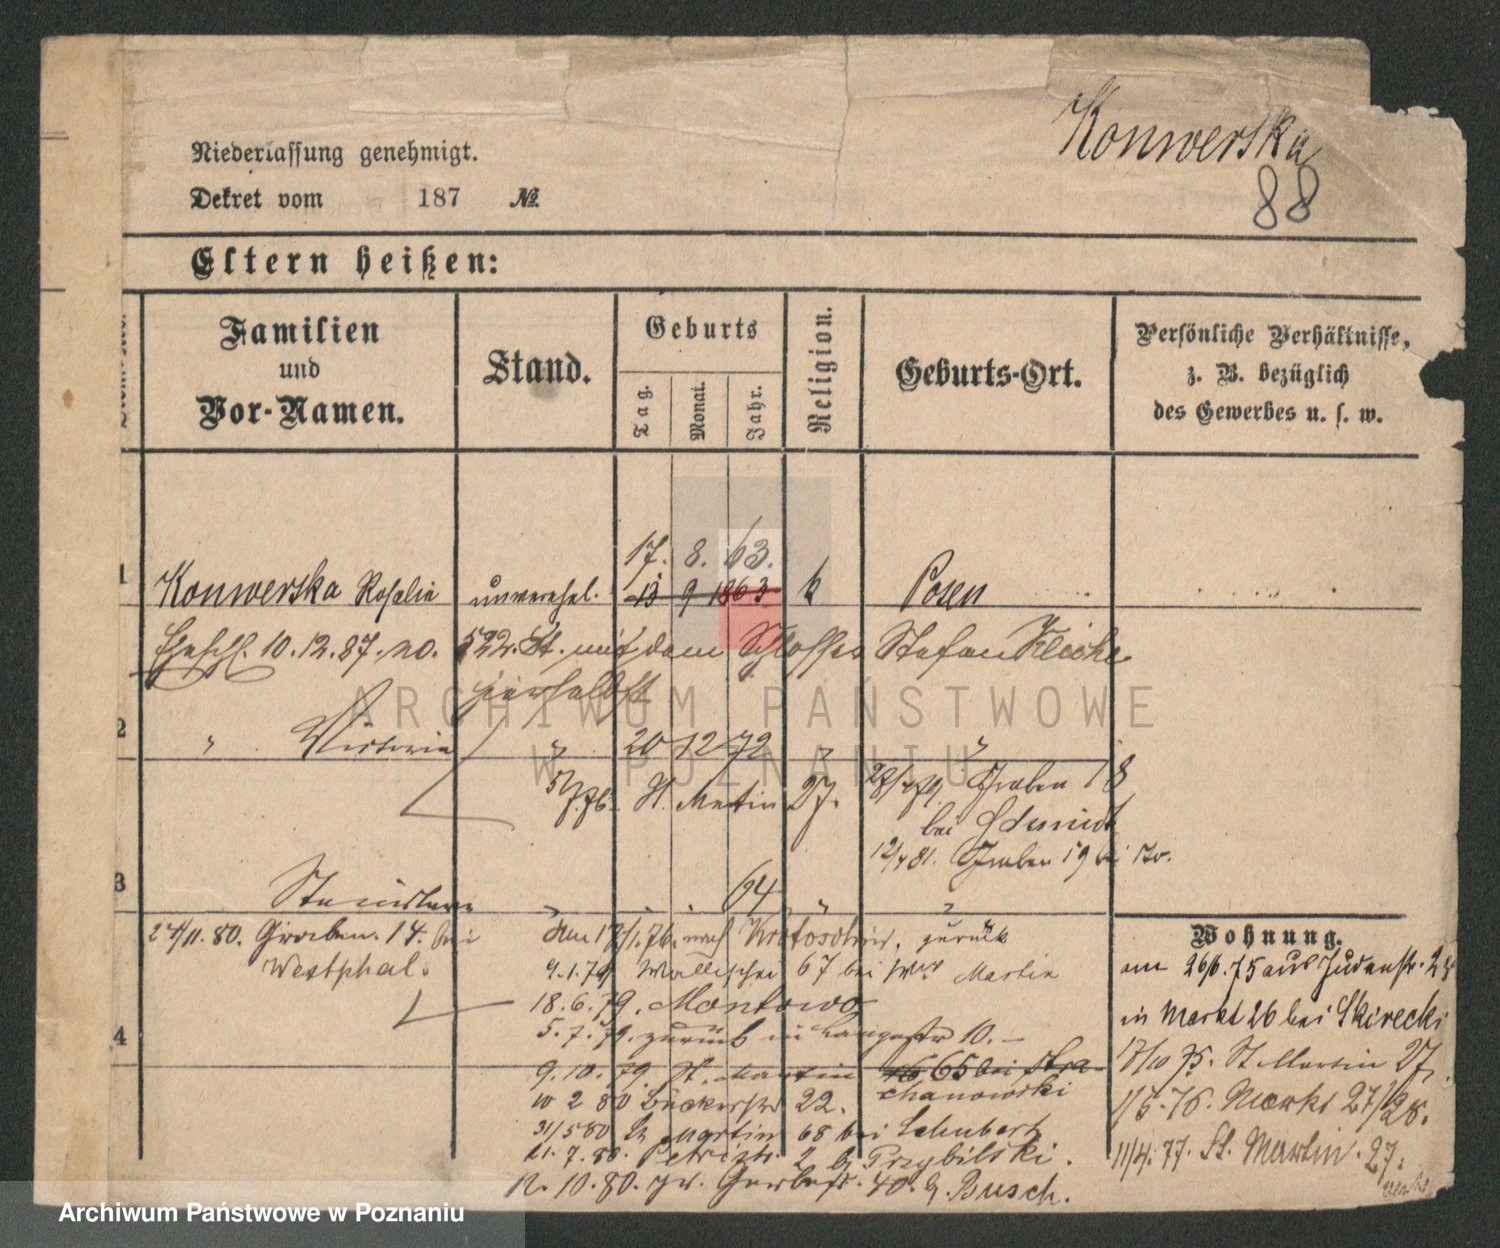 Konwerska
88
Niederlassung genehmigt.
Dekret vom 187 №
Eltern heißen:
Familien und Vor-Namen.
Stand.
Geburts
Tag.
Monat.
Jahr.
Religion.
Geburts-Ort.
Persönliche Verhältnisse,
z. B. bezüglich
des Gewerbes u. s. w.
17. 8. 63.
1 Konwerska Rosalie unverehel. 13 9 1863 k Posen
Eheschl. 10.12.87. no. 522. St. mit dem Schlosser Stefan
hierselbst
2 " Victoria " 20 12 72 " "
St. Martin 27. Graben 18
bei Schmidt
12/4 81. Graben 19 bei
3 64
24/11. 80. Graben. 14. bei
Westphal.
1/76. nach Krotoschin, zurück
9.1.79 Wallischei 67 bei Martin
18.6.79.
5.7.79. zurück in Langestr 10.
9.10.79. St. Martin 65 bei Stra
chanowski
10 2 80 Bäckerstr 22.
31/5 80 St Martin 68 bei Schubert
21.7.80. Petristr. 2 b. Przybilski.
12.10.80. gr. Gerberstr. 40. b. Busch.
4
Wohnung.
am 26/6.75 aus Judenstr.
in Markt 26 bei Skirecki
17/10 75. St Martin 27.
1/5.76. Markt 27/28.
11/4.77. St. Martin. 27.
ARCHIWUM PAŃSTWOWE
W POZNANIU
Archiwum Państwowe w Poznaniu